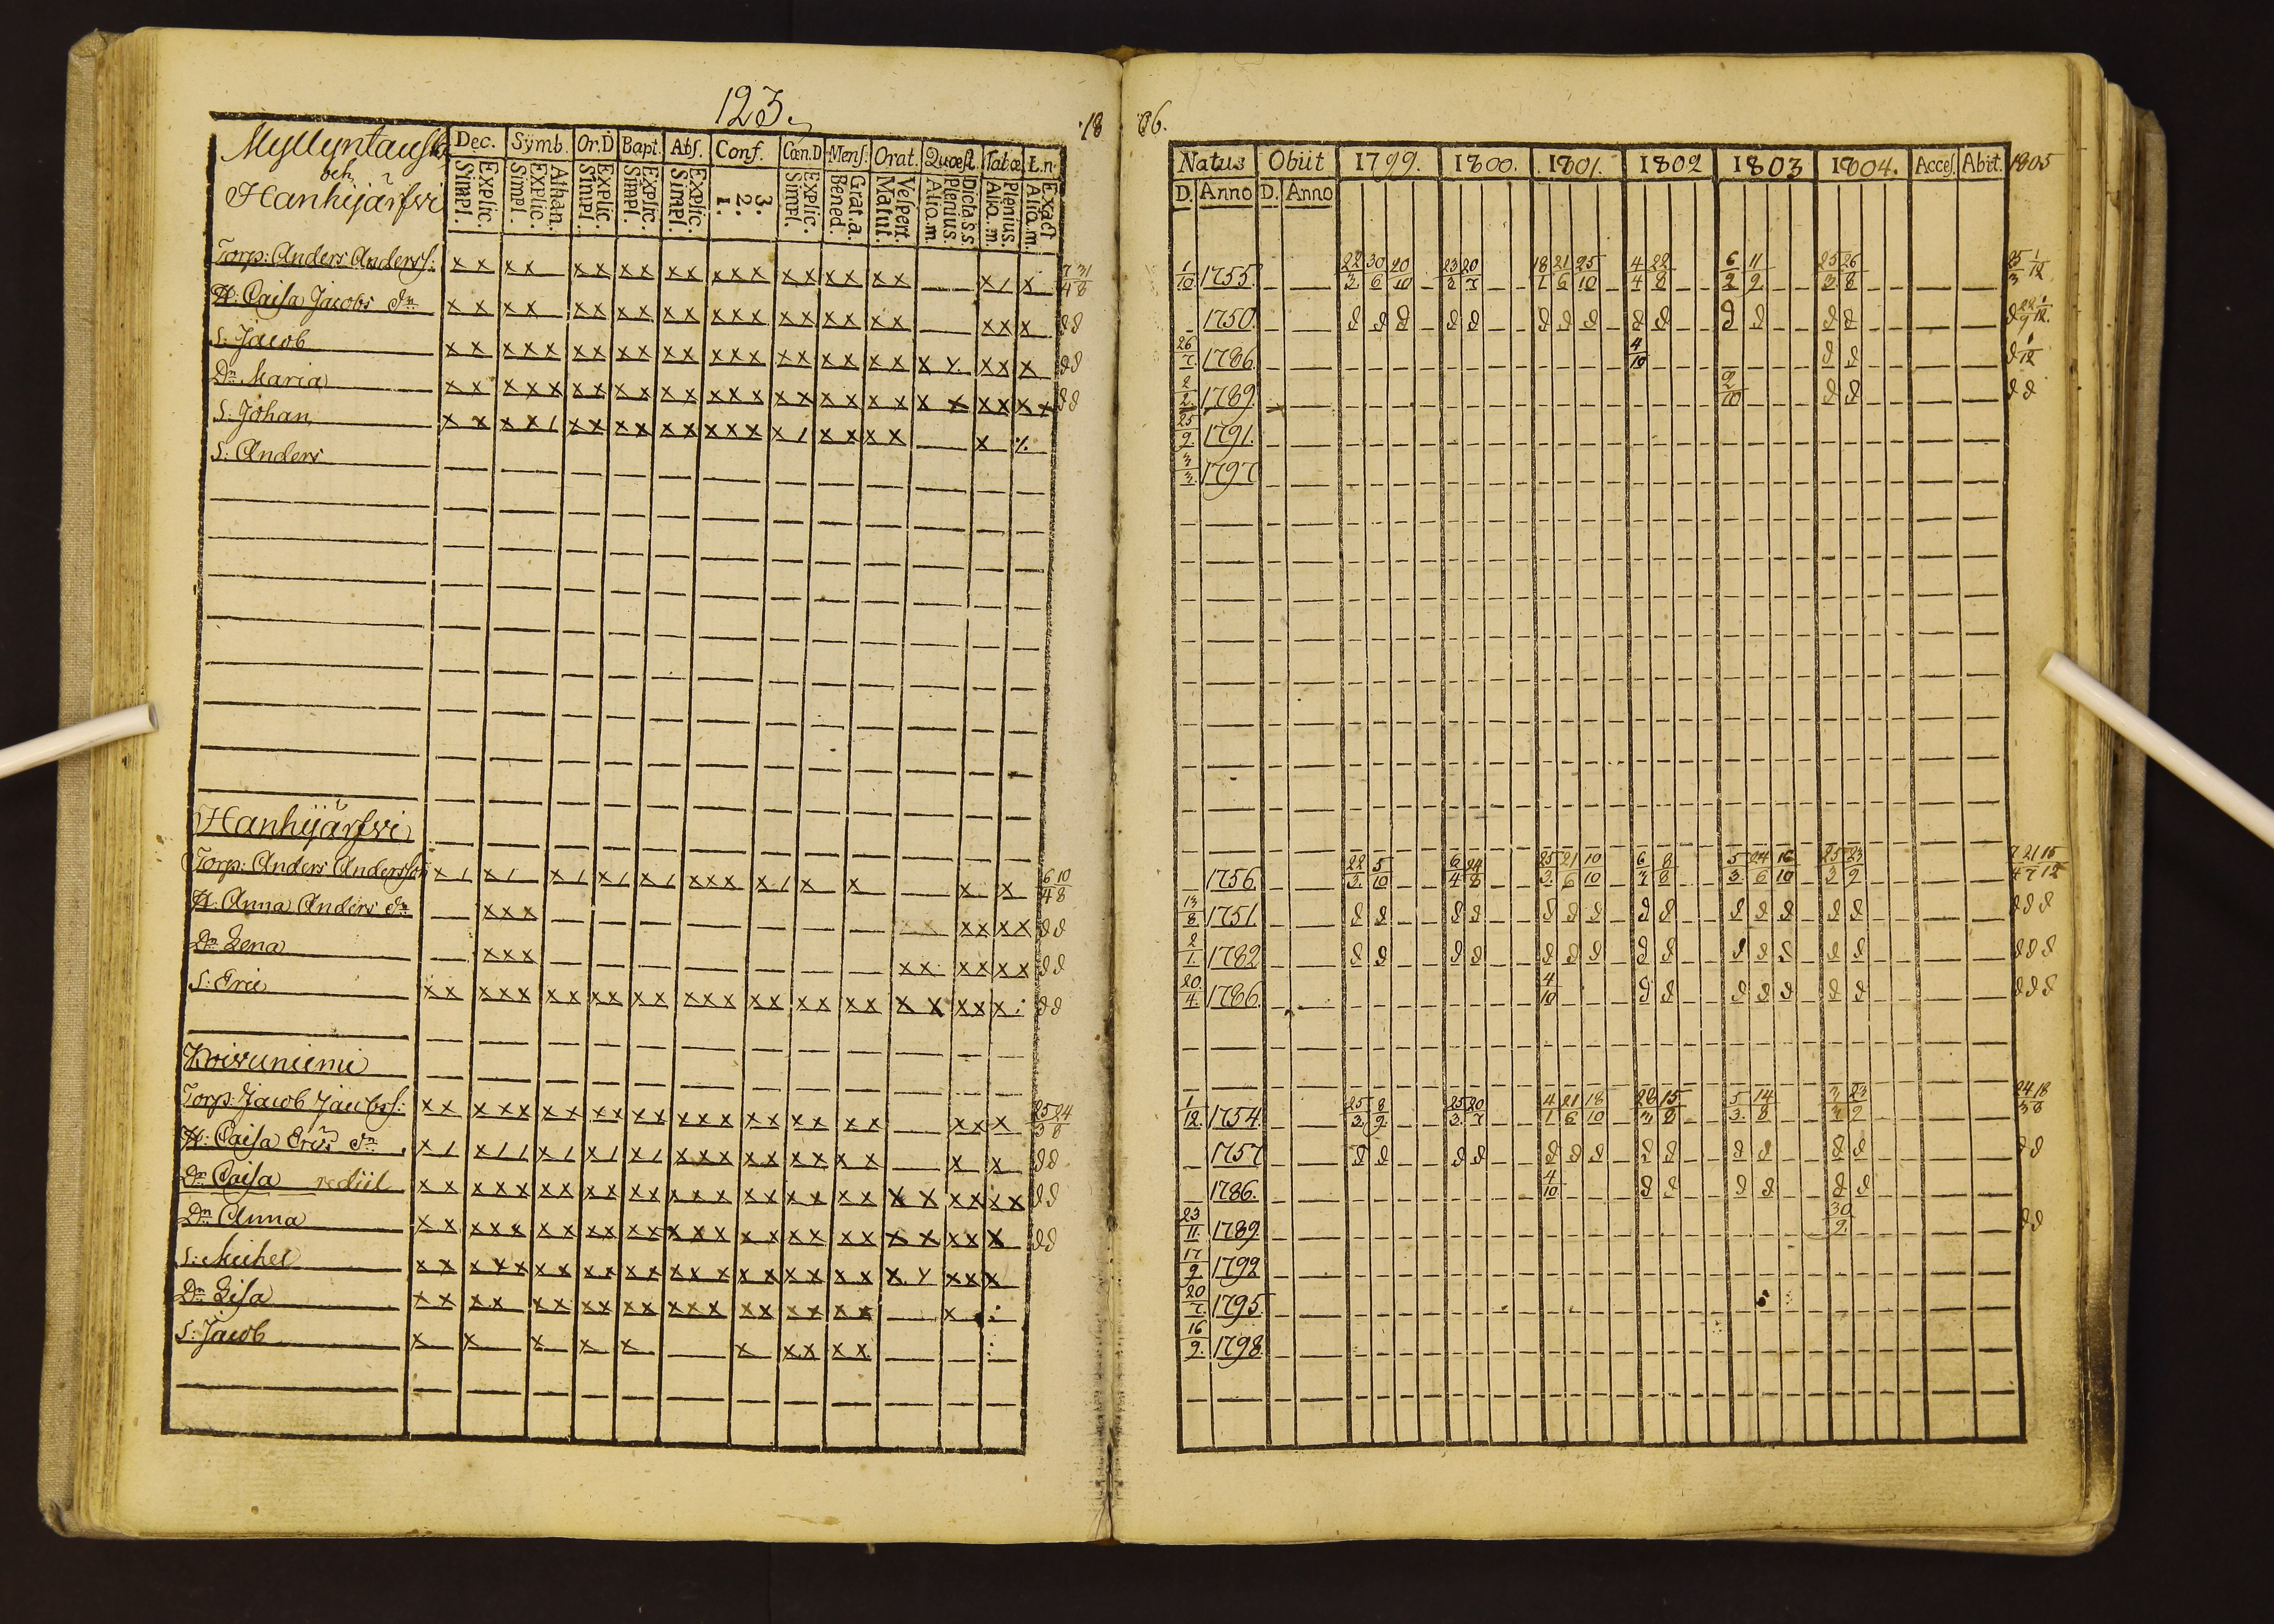 123.
18 06.
Myllyntausta
och
Hanhijärfvi
Dec. Symb. Or.D Bapt. Abſ. Conf. Cœn.D Menſ. Orat. Quæſt. Tabæ L.n.
Simpl. Explic. Simpl. Explic. Athan. Simpl. Explic. Simpl. Explic. Simpl. Explic. 1. 2. 3. Simpl. Explic. Bened. Grat.a. Matut. Veſpert. Aliq.m. Plenius. Dicta.s.s. Aliq.m. Plenius. Aliq.m. Exact
Natus Obiit 1799. 1800. 1801. 1802 1803 1804. Acceſ. Abiit. 1805
D. Anno D. Anno
Torp: Anders Anderss: 1/10 1755. 22/3 30/6 20/10 23/3 20/7 18/1 21/6 25/10 4/4 22/8 6/2 11/9 25/3 26/8
H: Caisa Jacobs dr 1750.
S: Jacob 26/7 1786 4/10
Dr Maria 2/2 1789
S: Johan 25/9 1791.
S: Anders 3/3 1797
Hanhijärfvi
Torp: Anders Andersson 1756 22/3 5/10 6/4 24/8 25/3 21/6 10/10 6/3 8/8 5/3 24/6 16/10 25/3 23/9
H: Anna Anders dr 13/8 1751
Dr Lena 2/1 1782
S: Eric 20/4 1786 4/10
Koivuniemi
Torp: Jacob Jacobss: 1/12 1754 25/3 8/9 25/3 20/7 4/1 21/6 18/10 28/3 15/8 5/3 14/8 3/3 23/9 24/3 18/8
H: Caisa Erics dr 1757
Dr Caisa rediit 1786. 4/10
Dr Anna 23/11 1789 30/9
S: Michel 17/9 1792
Dr Lisa 20/7 1795
S: Jacob 16/9 1798